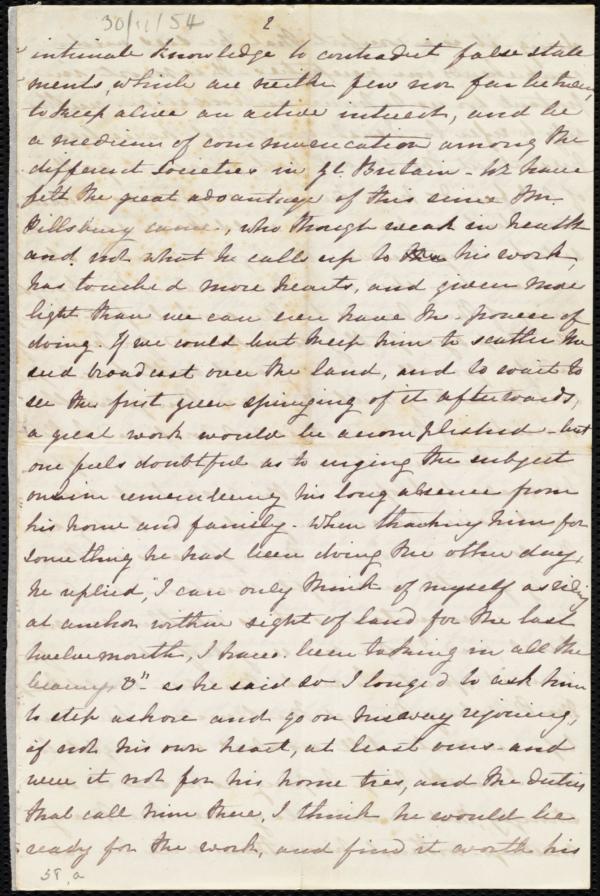 30/11/54
2
intimate knowledge to contradict false state
ments, which are neither few nor far between,
to keep alive an active interest, and be
a medium of communication among the
different Societies in Gt. Britain - We have
felt the great advantage of this since Mr.
Pillsbury came, who though weak in health
and not what he calls up to his work,
has touched more hearts, and given more
light than we can even have the power of
doing. If we could but keep him to scatter the
seed broadcast over the land, and to wait to
see the first green springing of it afterwards,
a great work would be accomplished - but
one feels doubtful as to urging the subject
on him remembering his long absence from
his home and family. When thanking him for
something he had been doing the other day,
he replied, "I can only think of myself as riding
at anchor within sight of land for the last
twelvemonth, I have been taking in all the
as he said so I longed to ask him
to step ashore and go on his way rejoicing,
if not his own heart, at least ours - and
were it not for his home ties, and the duties
that call him there, I think he would be
ready for the work, and find it worth his
58, a